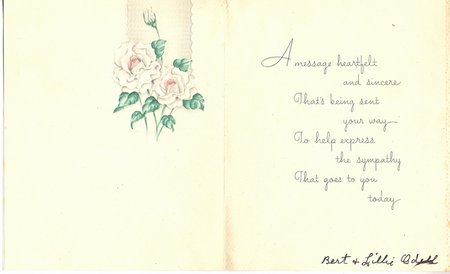 A message heartfelt
and sincere
That's being sent
your way
To help express
the sympathy
That goes to you
today
Bert & Lillie Odell